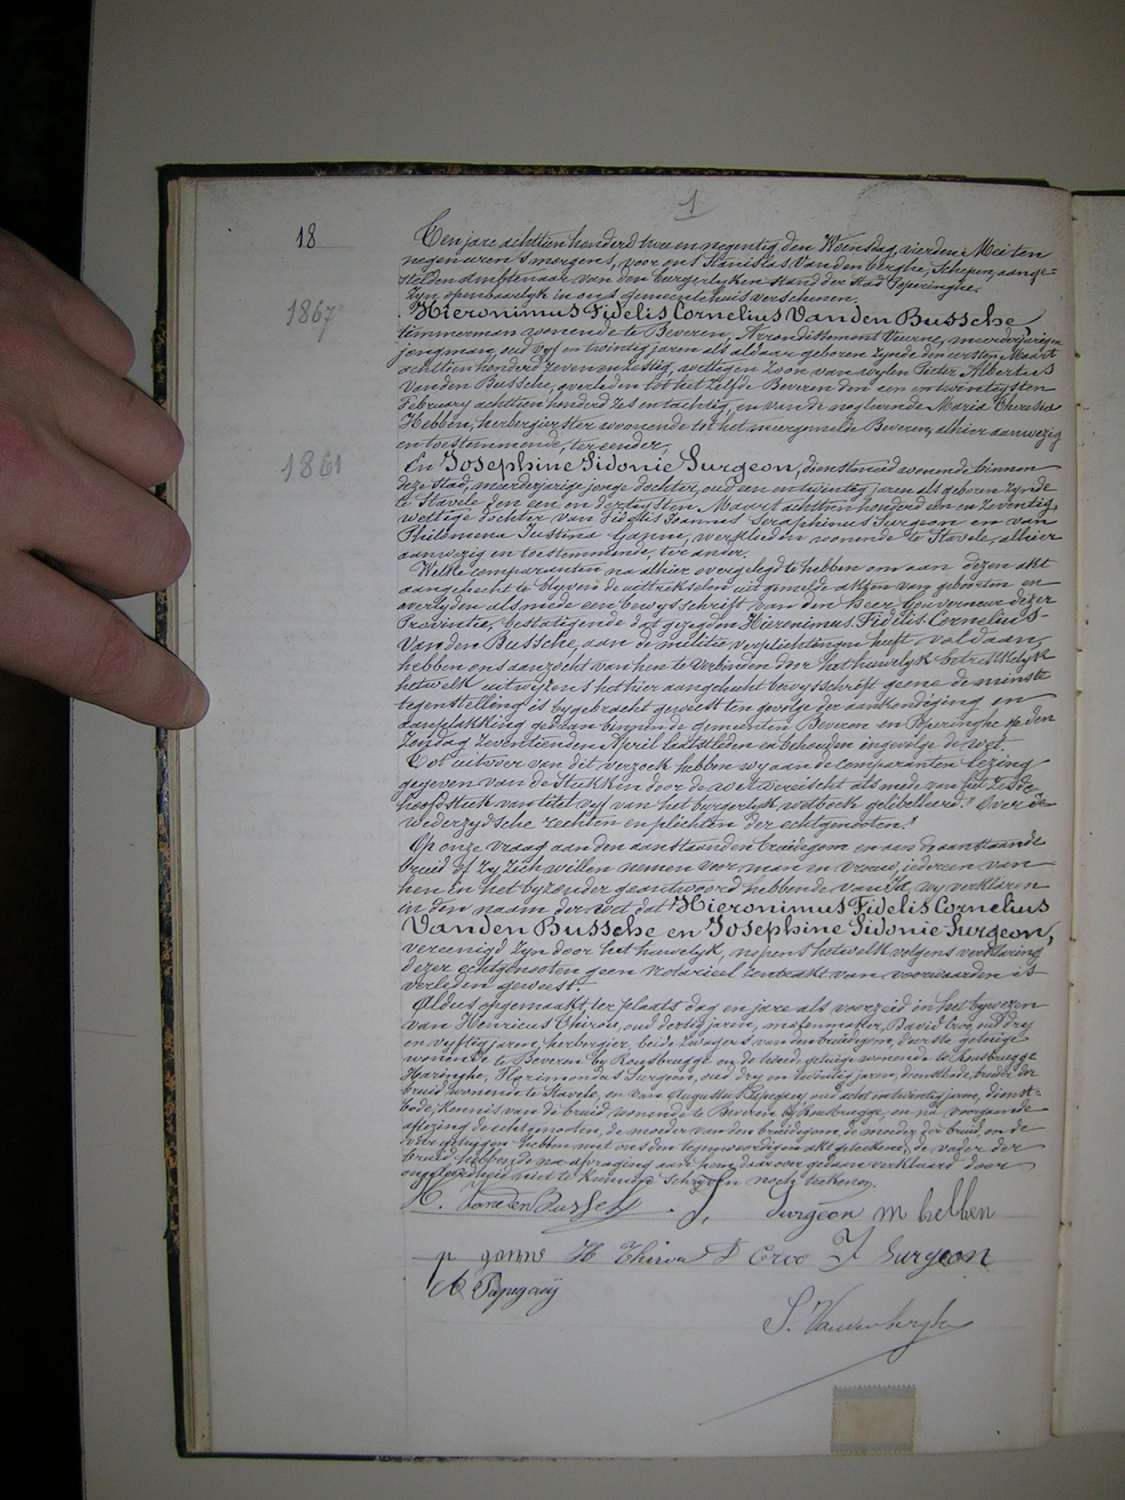 1
18
Ten jare achttien honderd twee en negentig den Woensdag vierden Mei ten
negen uren 's morgens, voor ons Stanislas Vandenberghe, Schepen, aange=
stelden ambtenaar van den burgerlyken stand der stad Poperinghe,
Zyn openbaarlyk in ons gemeentehuis verschenen.
1867
Hieronimus Fidelis Cornelius Vanden Bussche
timmerman wonende te Beveren, Arrondissement Veurne, meerderjarigen
jongman, oud vyf en twintig jaren als aldaar geboren zynde den eersten Maart
achttien honderd zeven en zestig, wettegen zoon van wylen Pieter Albertus
Vanden Bussche, overleden tot het zelfde Beveren den een en twintigsten
February achttien honderd zes en tachtig, en van de nogleevende Maria Theresia
Hebben, herbergierster woonende tot het meergemelde Beveren, alhier aanwezig
en toestemmende, ter eender,
1861
En Josephine Sidonie Surgeon, dienstmeid wonende binnen
deze stad, meerderjarige jonge dochter, oud een en twintig jaren als geboren zynde
te Stavele den een en dertigsten Maart achttien honderd een en zeventig,
wettige dochter van Fidelis Joannes Seraphinus Surgeon en van
Philomena Justina Ganne, werklieden wonende te Stavele, alhier
aanwezig en toestemmende, ter ander.
Welke comparanten na alhier overgelegd te hebben om aan dezen akt
aangehecht te blyven de uittrekselen uit gemelde akten van geboorten en
overlyden alsmede een bewysschrift van den heer Gouverneur dezer
Provintie, bestatigende dat gezegden Hieronimus Fidelis Cornelius
Vanden Bussche, aan de militie verplichtingen heeft voldaan,
hebben ons aanzocht van hen te verbinden door het huwelyk betrekkelyk
hetwelk uitwyzens het hier aangehecht bewysschrift geene de minste
tegenstelling is bygebracht geweest ten gevolge der aankondiging en
aanplakking gedaan binnen de gemeenten Beveren en Poperinghe op den
Zondag zeventienden April laatstleden en behouden ingevolge de wet.
Tot uitvoer van dit verzoek hebben wy aan de comparanten lezing
gegeven van de stukken door de wet vereischt alsmede van het zesde
hoofdstuk van titel vyf van het burgerlyk wetboek gelibelleerd: "Over de
wederzydsche rechten en plichten der echtgenooten."
Op onze vraag aan den aanstaanden bruidegom en aan de aanstaande
bruid of zy zich willen nemen voor man en vrouw, iedereen van
hen in het byzonder geantwoord hebbende van Ja, wy verklaren
in den naam der wet dat Hieronimus Fidelis Cornelius
Vanden Bussche en Josephine Sidonie Surgeon,
vereenigd zyn door het huwelyk, nopens hetwelk volgens verklaring
dezer echtgenooten geen notarieel kontrakt van voorwaarden is
verleden geweest.
Aldus opgemaakt, ter plaats dag en jare als voorzeid in het bywezen
van Henricus Thirou, oud dertig jaren, matenmaker, David Croo, oud dry
en vyftig jaren, herbergier, beide zwagers van den bruidegom, d'eerste getuige
wonende te Beveren by Rousbrugge en de tweede getuige wonende te Rousbrugge
Haringhe, Florimondus Surgeon, oud dry en twintig jaren, dienstbode, broeder der
bruid, wonende te Stavele, en van Augustus Papegaey oud acht en twintig jaren, dienst=
bode, kennis van de bruid, wonende te Beveren by Rousbrugge, en na voorgaande
aflezing de echtgenooten, de moeder van den bruidegom, de moeder der bruid, en de
vier getuigen hebben met ons den tegenwoordigen akt geteekend, de vader der
bruid hebbende na afvraging aan hem daarover gedaan verklaard door
ongeleerdheid niet te kunnen schryven noch teekenen.
H. VandenBussche J. Surgeon m hebben
p ganne H Thirou D Croo F Surgeon
A Papegaey
S. Vandenberghe